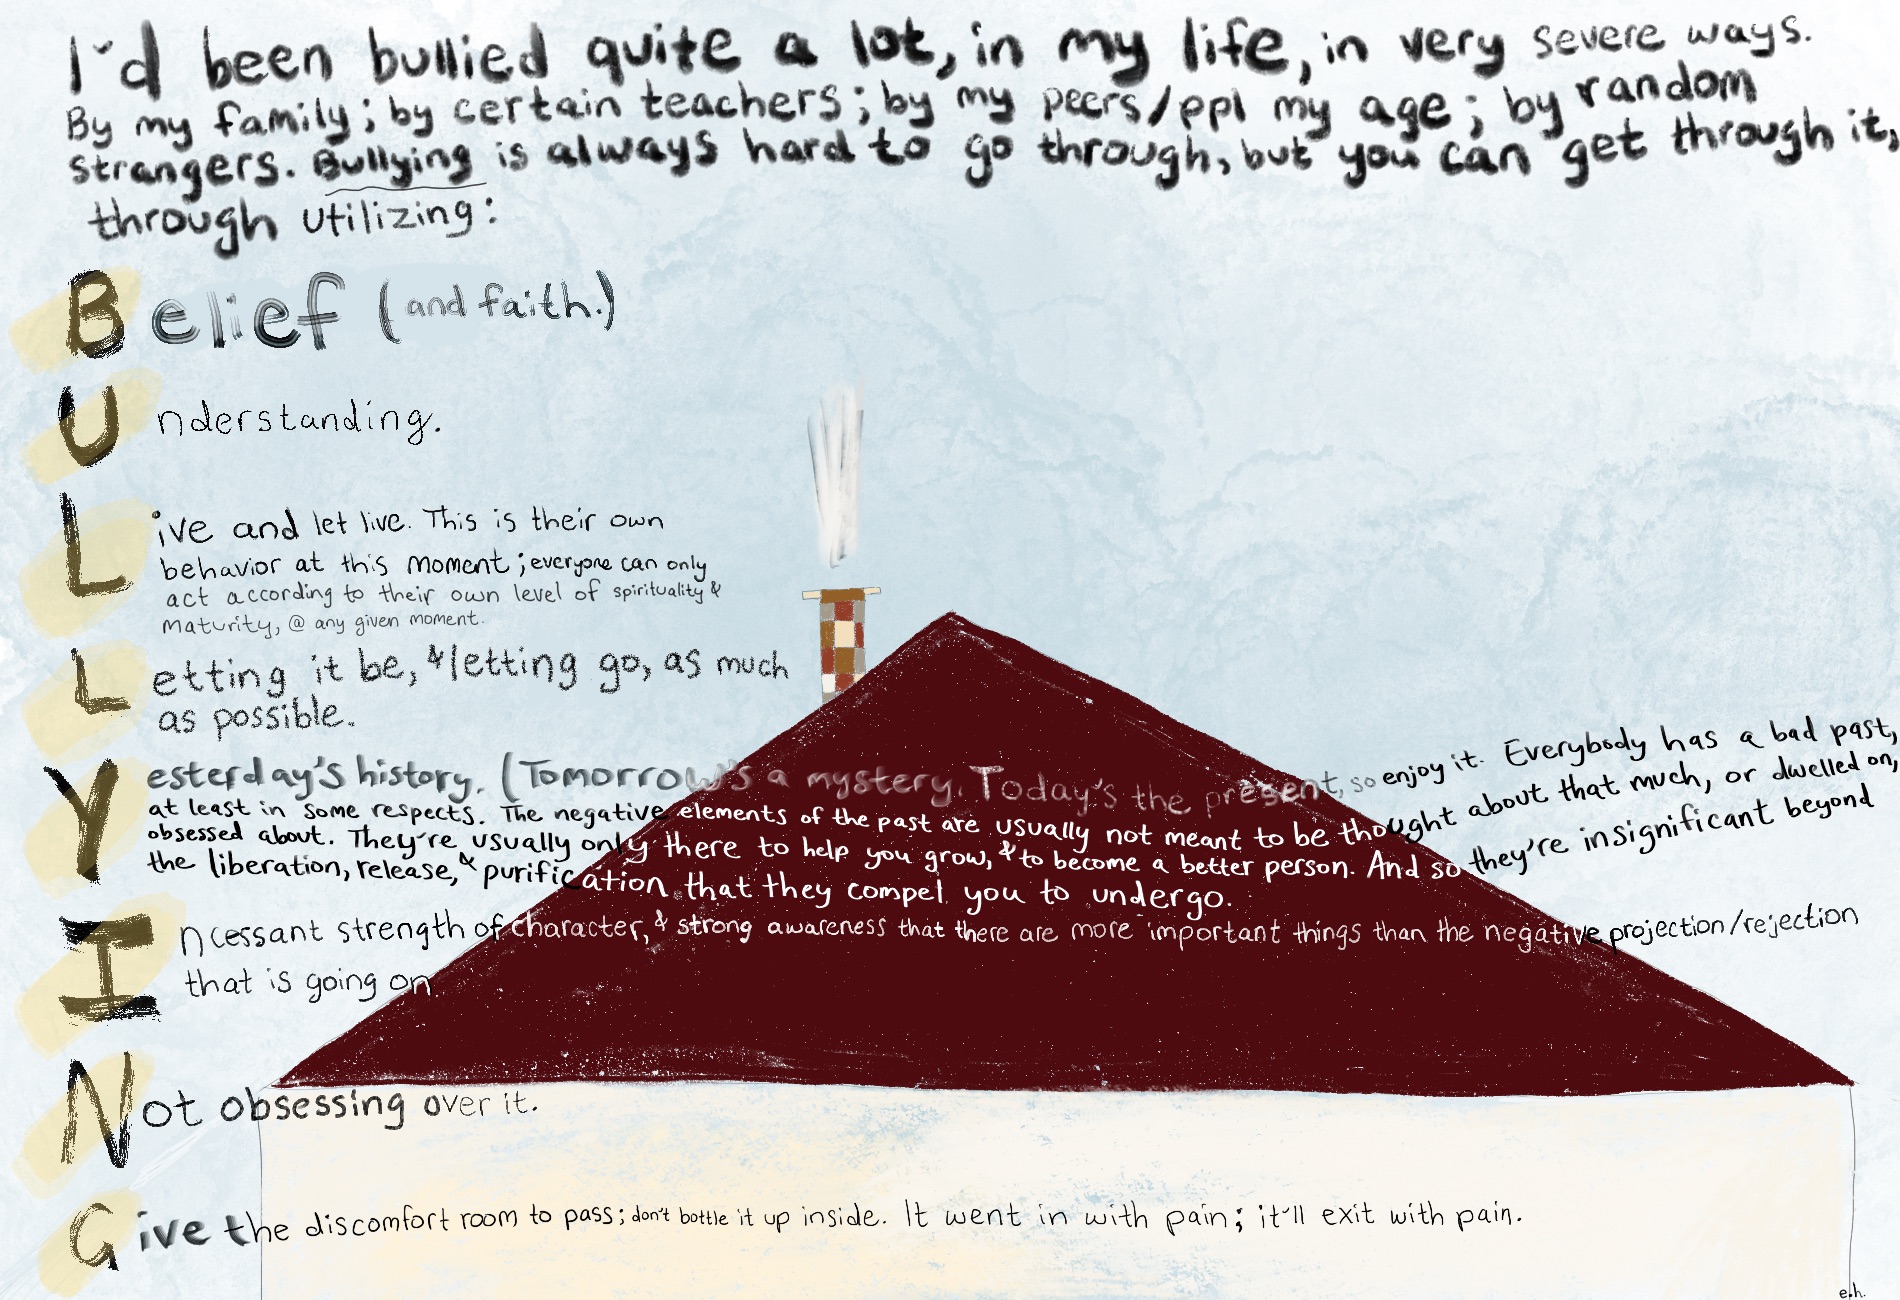 I'd been bullied quite a lot, in my life, in very severe ways.
By my family; by certain teachers; by my peers/ppl my age; by random
strangers. Bullying is always hard to go through, but you can get through it,
through utilizing:
Belief (and faith.)
Understanding.
Live and let live. This is their own
behavior at this moment; everyone can only
act according to their own level of spirituality &
maturity, @ any given moment.
Letting it be, & letting go, as much
as possible.
Yesterday's history. (Tomorrow's a mystery. Today's the present, so enjoy it. Everybody has a bad past,
at least in some respects. The negative elements of the past are usually not meant to be thought about that much, or dwelled on,
obsessed about. They're usually only there to help you grow, & to become a better person. And so they're insignificant beyond
the liberation, release, & purification that they compel you to undergo.
Incessant strength of character, & strong awareness that there are more important things than the negative projection/rejection
that is going on
Not obsessing over it.
Give the discomfort room to pass; don't bottle it up inside. It went in with pain; it'll exit with pain.
e.h.